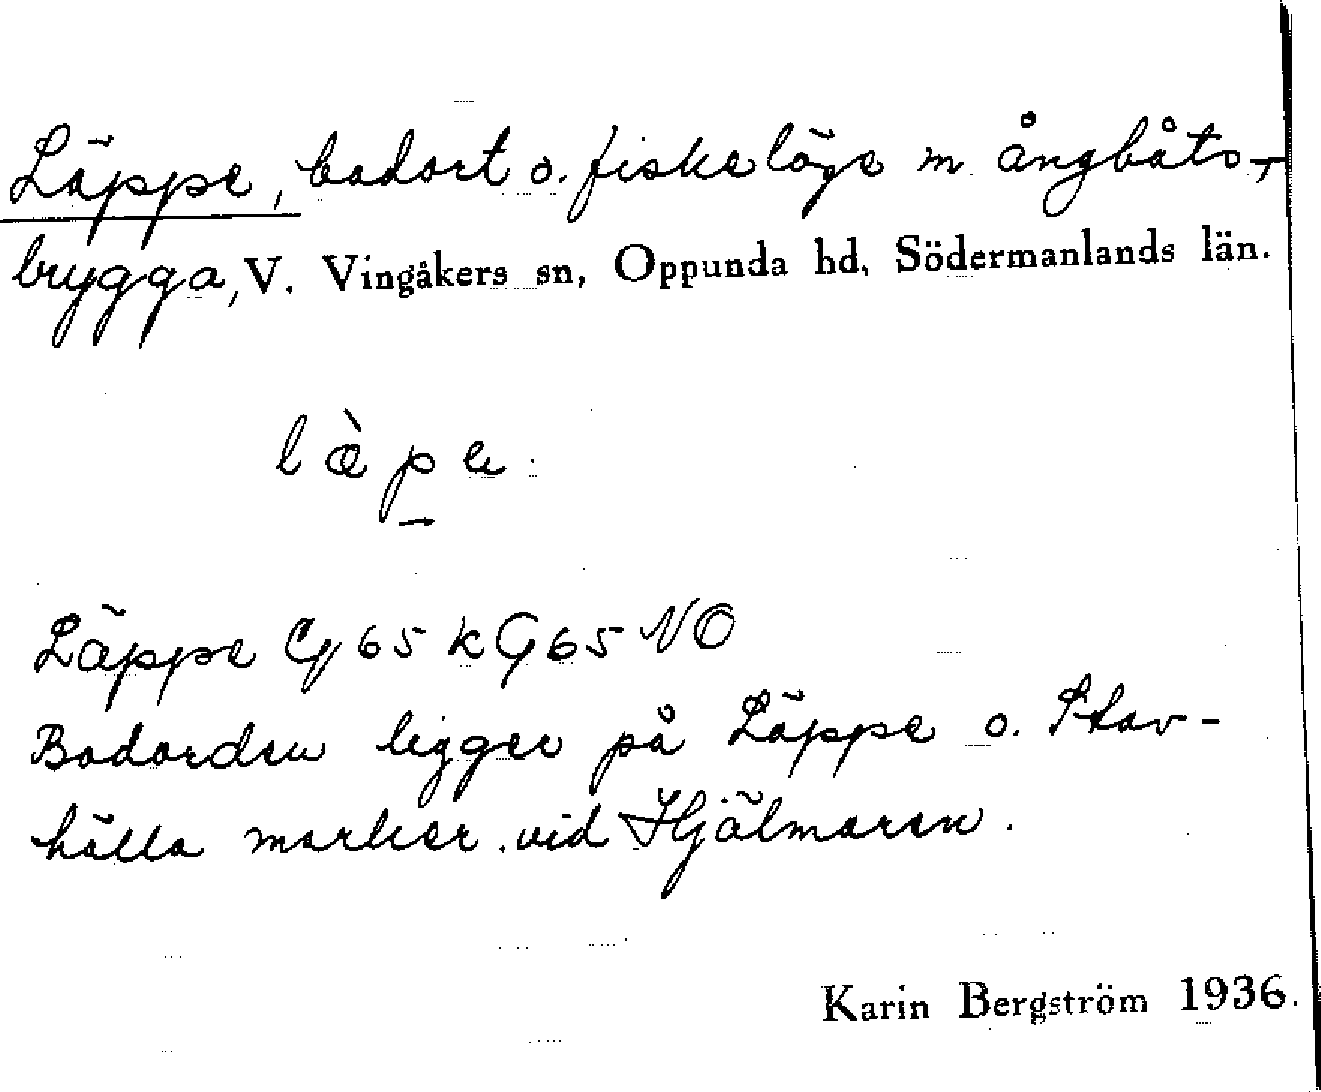 Läppe, badort o. fiskeläge m ångbåts-
brygga, V. Vingåkers sn, Oppunda hd, Södermanlands län.
læ̀pe
Läppe Cg 65 k G 65 NO
Badorden ligger på Läppe o. Stav-
hälla marker vid Hjälmaren.
Karin Bergström 1936.